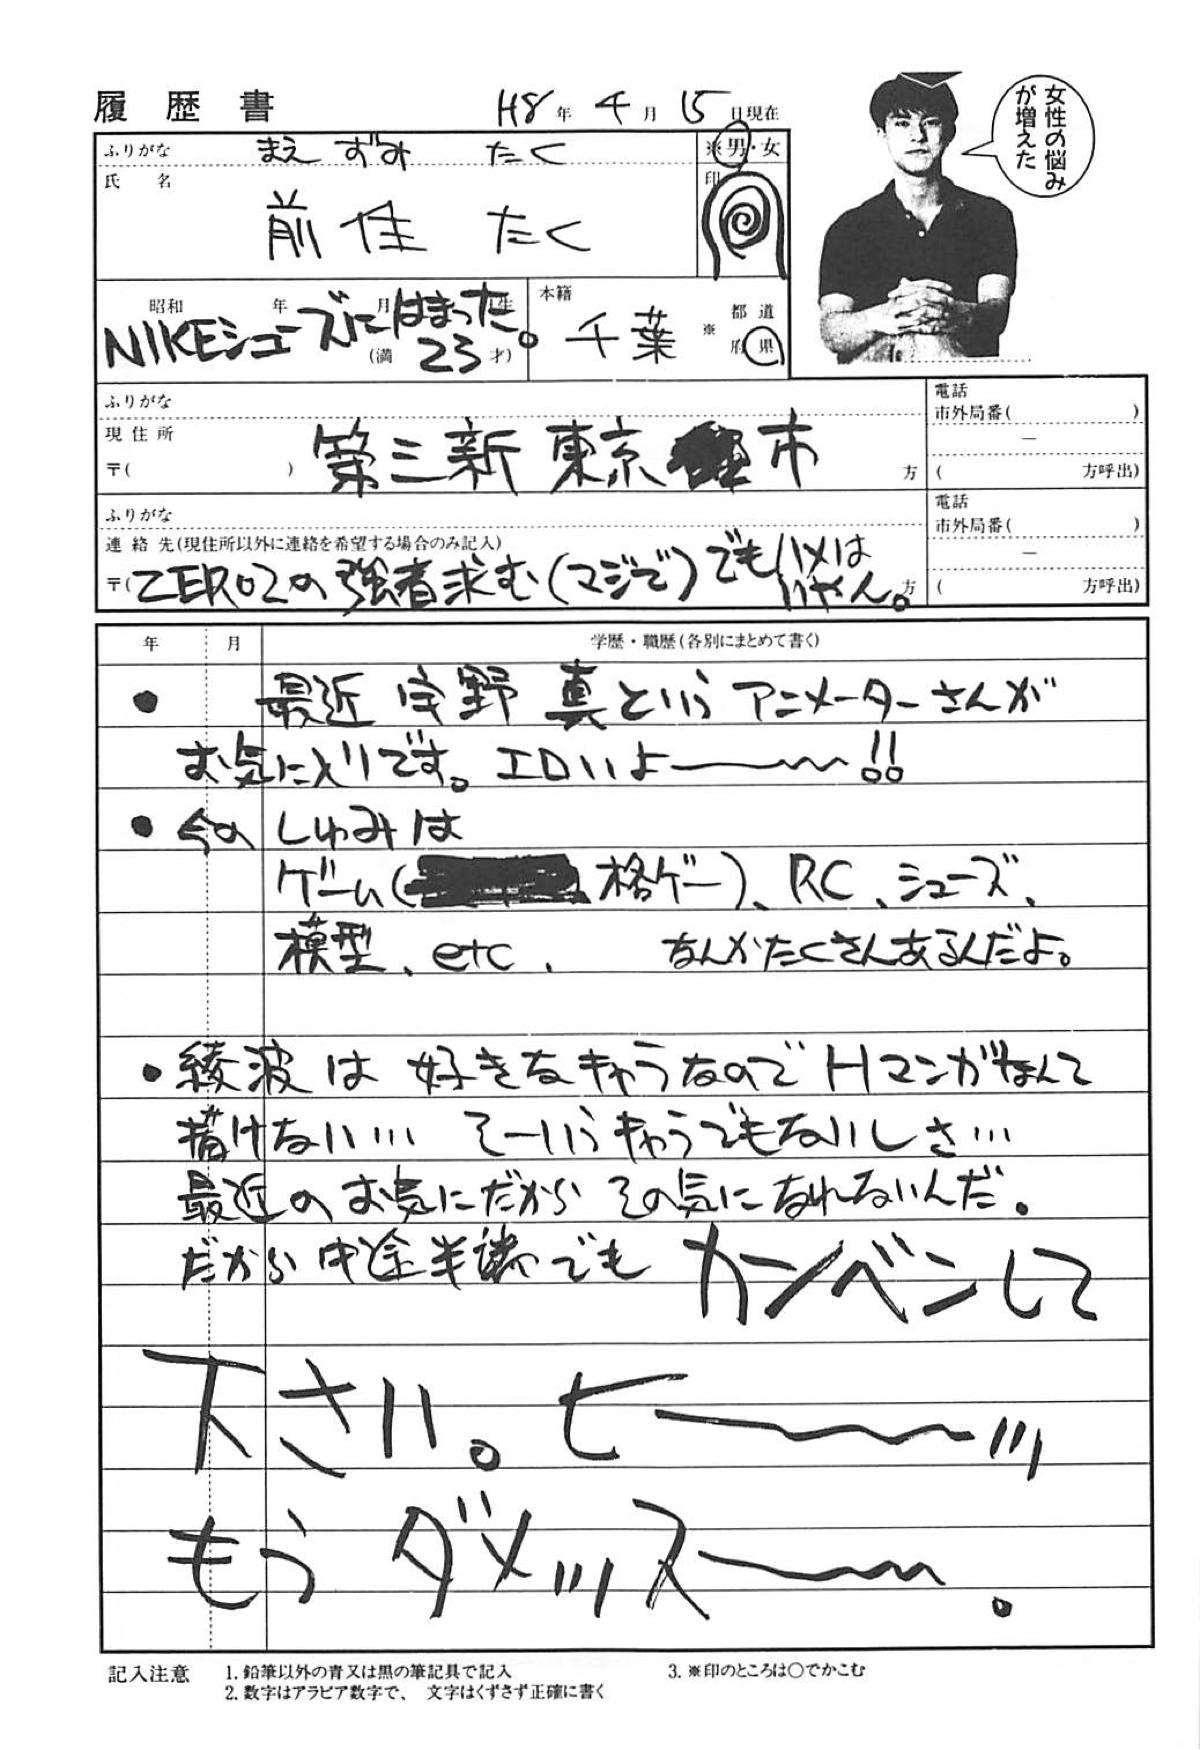 履歴書 H8年4月15日現在
女性の悩みが増えた
ふりがな まえずみ たく ※男・女
氏名 前住 たく 印
昭和 年 月 日生 (満23才)
NIKEシューズにはまった。
本籍 千葉 ※都道府県
ふりがな
現住所
〒( ) 第三新東京市 方
電話
市外局番( )
―
( 方呼出)
ふりがな
連絡先(現住所以外に連絡を希望する場合のみ記入)
〒( ZERO2の強者求む(マジで)でもハメはいやん。 方
電話
市外局番( )
―
( 方呼出)
年 月 学歴・職歴(各別にまとめて書く)
● 最近 宇野 真というアニメーターさんが
お気に入りです。エロいよ―――〜〜!!
● 今のしゅみは
ゲーム( 格ゲー)、RC、シューズ、
模型、etc、 なんかたくさんあるんだよ。
● 綾波は 好きなキャラなので Hマンガなんて
描けない… そーいうキャラでもないしさ…
最近のお気にだから その気になれないんだ。
だから中途半端でも カンベンして
下さい。ヒ―――〜〜…
もう ダメッス――〜〜。
記入注意 1.鉛筆以外の青又は黒の筆記具で記入 3.※印のところは○でかこむ
2.数字はアラビア数字で、 文字はくずさず正確に書く